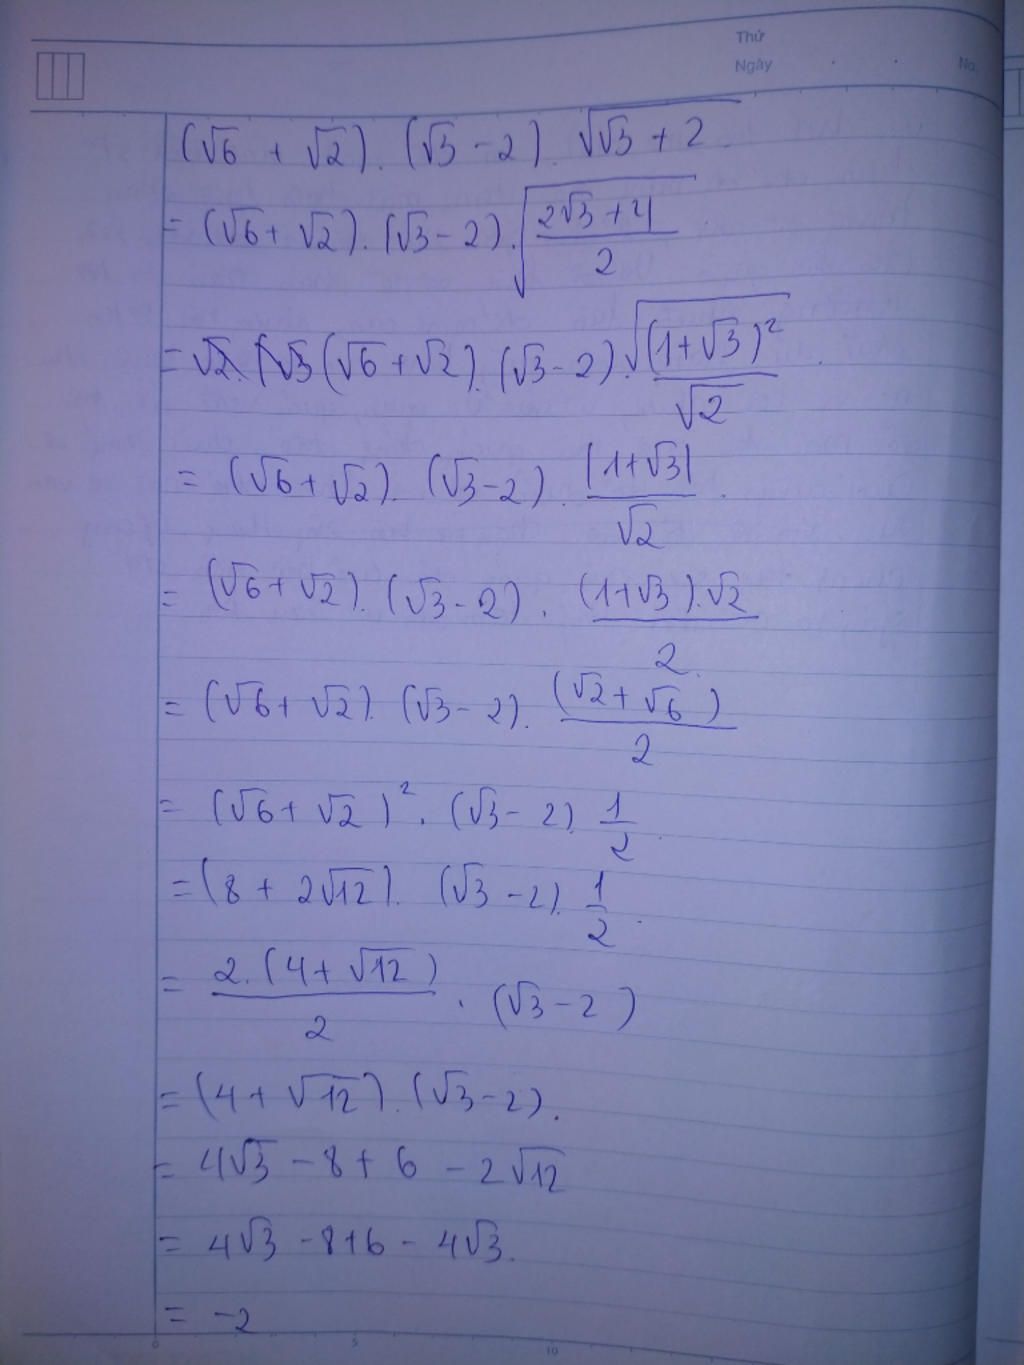 Thứ
Ngày . . No.
(√6 + √2). (√3 - 2). √(√3 + 2)
= (√6 + √2). (√3 - 2). √((2√3 + 4)/2)
= (√6 + √2). (√3 - 2). √((1 + √3)²)/√2
= (√6 + √2). (√3 - 2). |1 + √3|/√2
= (√6 + √2). (√3 - 2). ((1 + √3).√2)/2
= (√6 + √2). (√3 - 2). (√2 + √6)/2
= (√6 + √2)². (√3 - 2). 1/2
= (8 + 2√12). (√3 - 2). 1/2
= (2.(4 + √12))/2 . (√3 - 2)
= (4 + √12). (√3 - 2).
= 4√3 - 8 + 6 - 2√12
= 4√3 - 8 + 6 - 4√3.
= -2
0 5 10